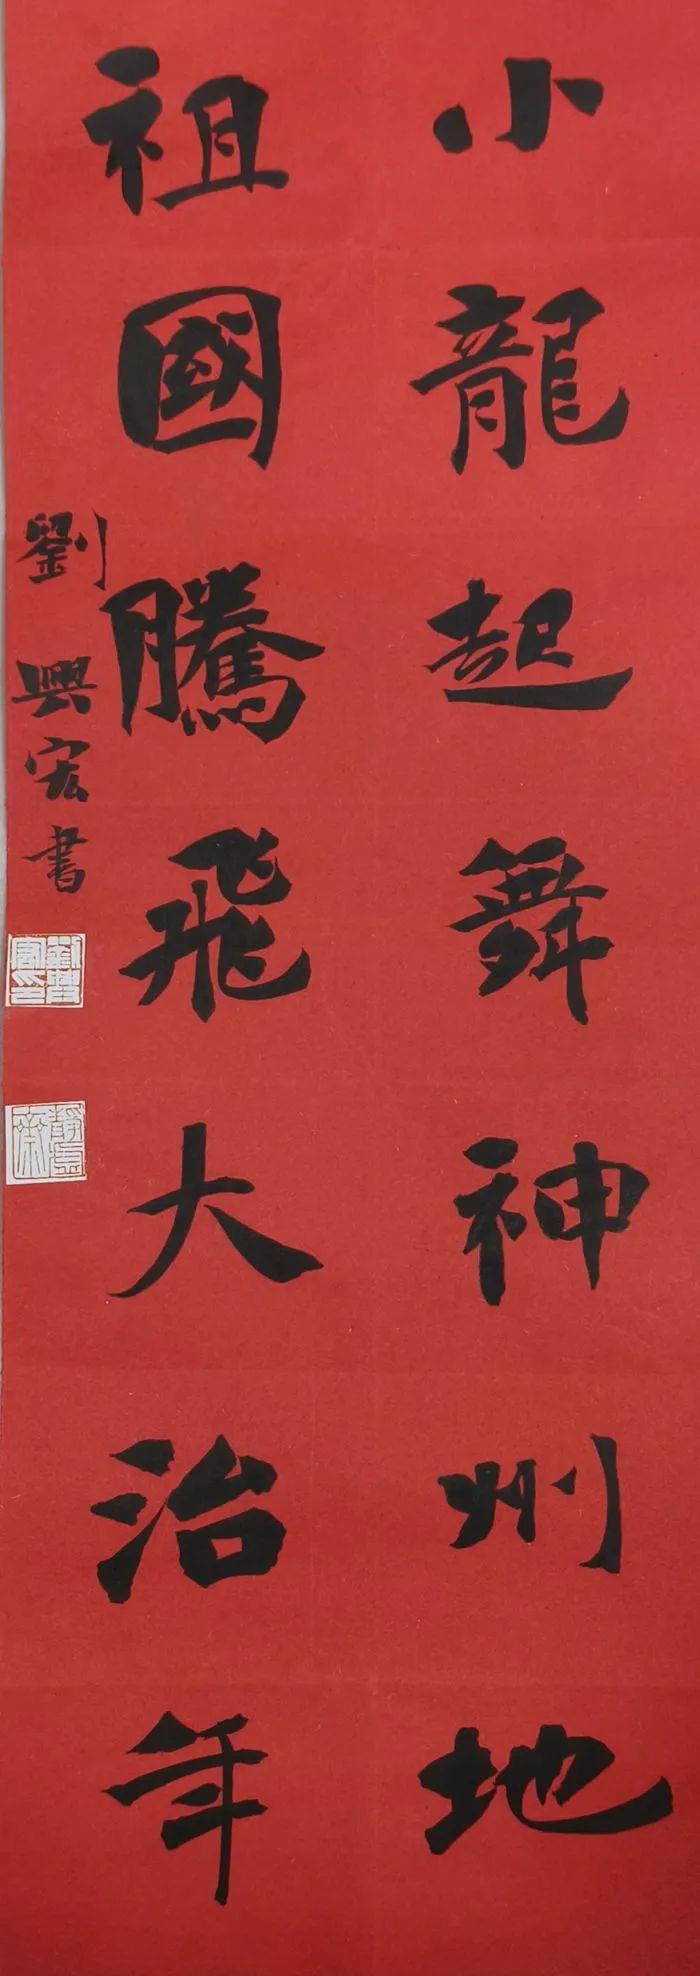 小龍起舞神州地
祖國騰飛大治年
劉興宏書